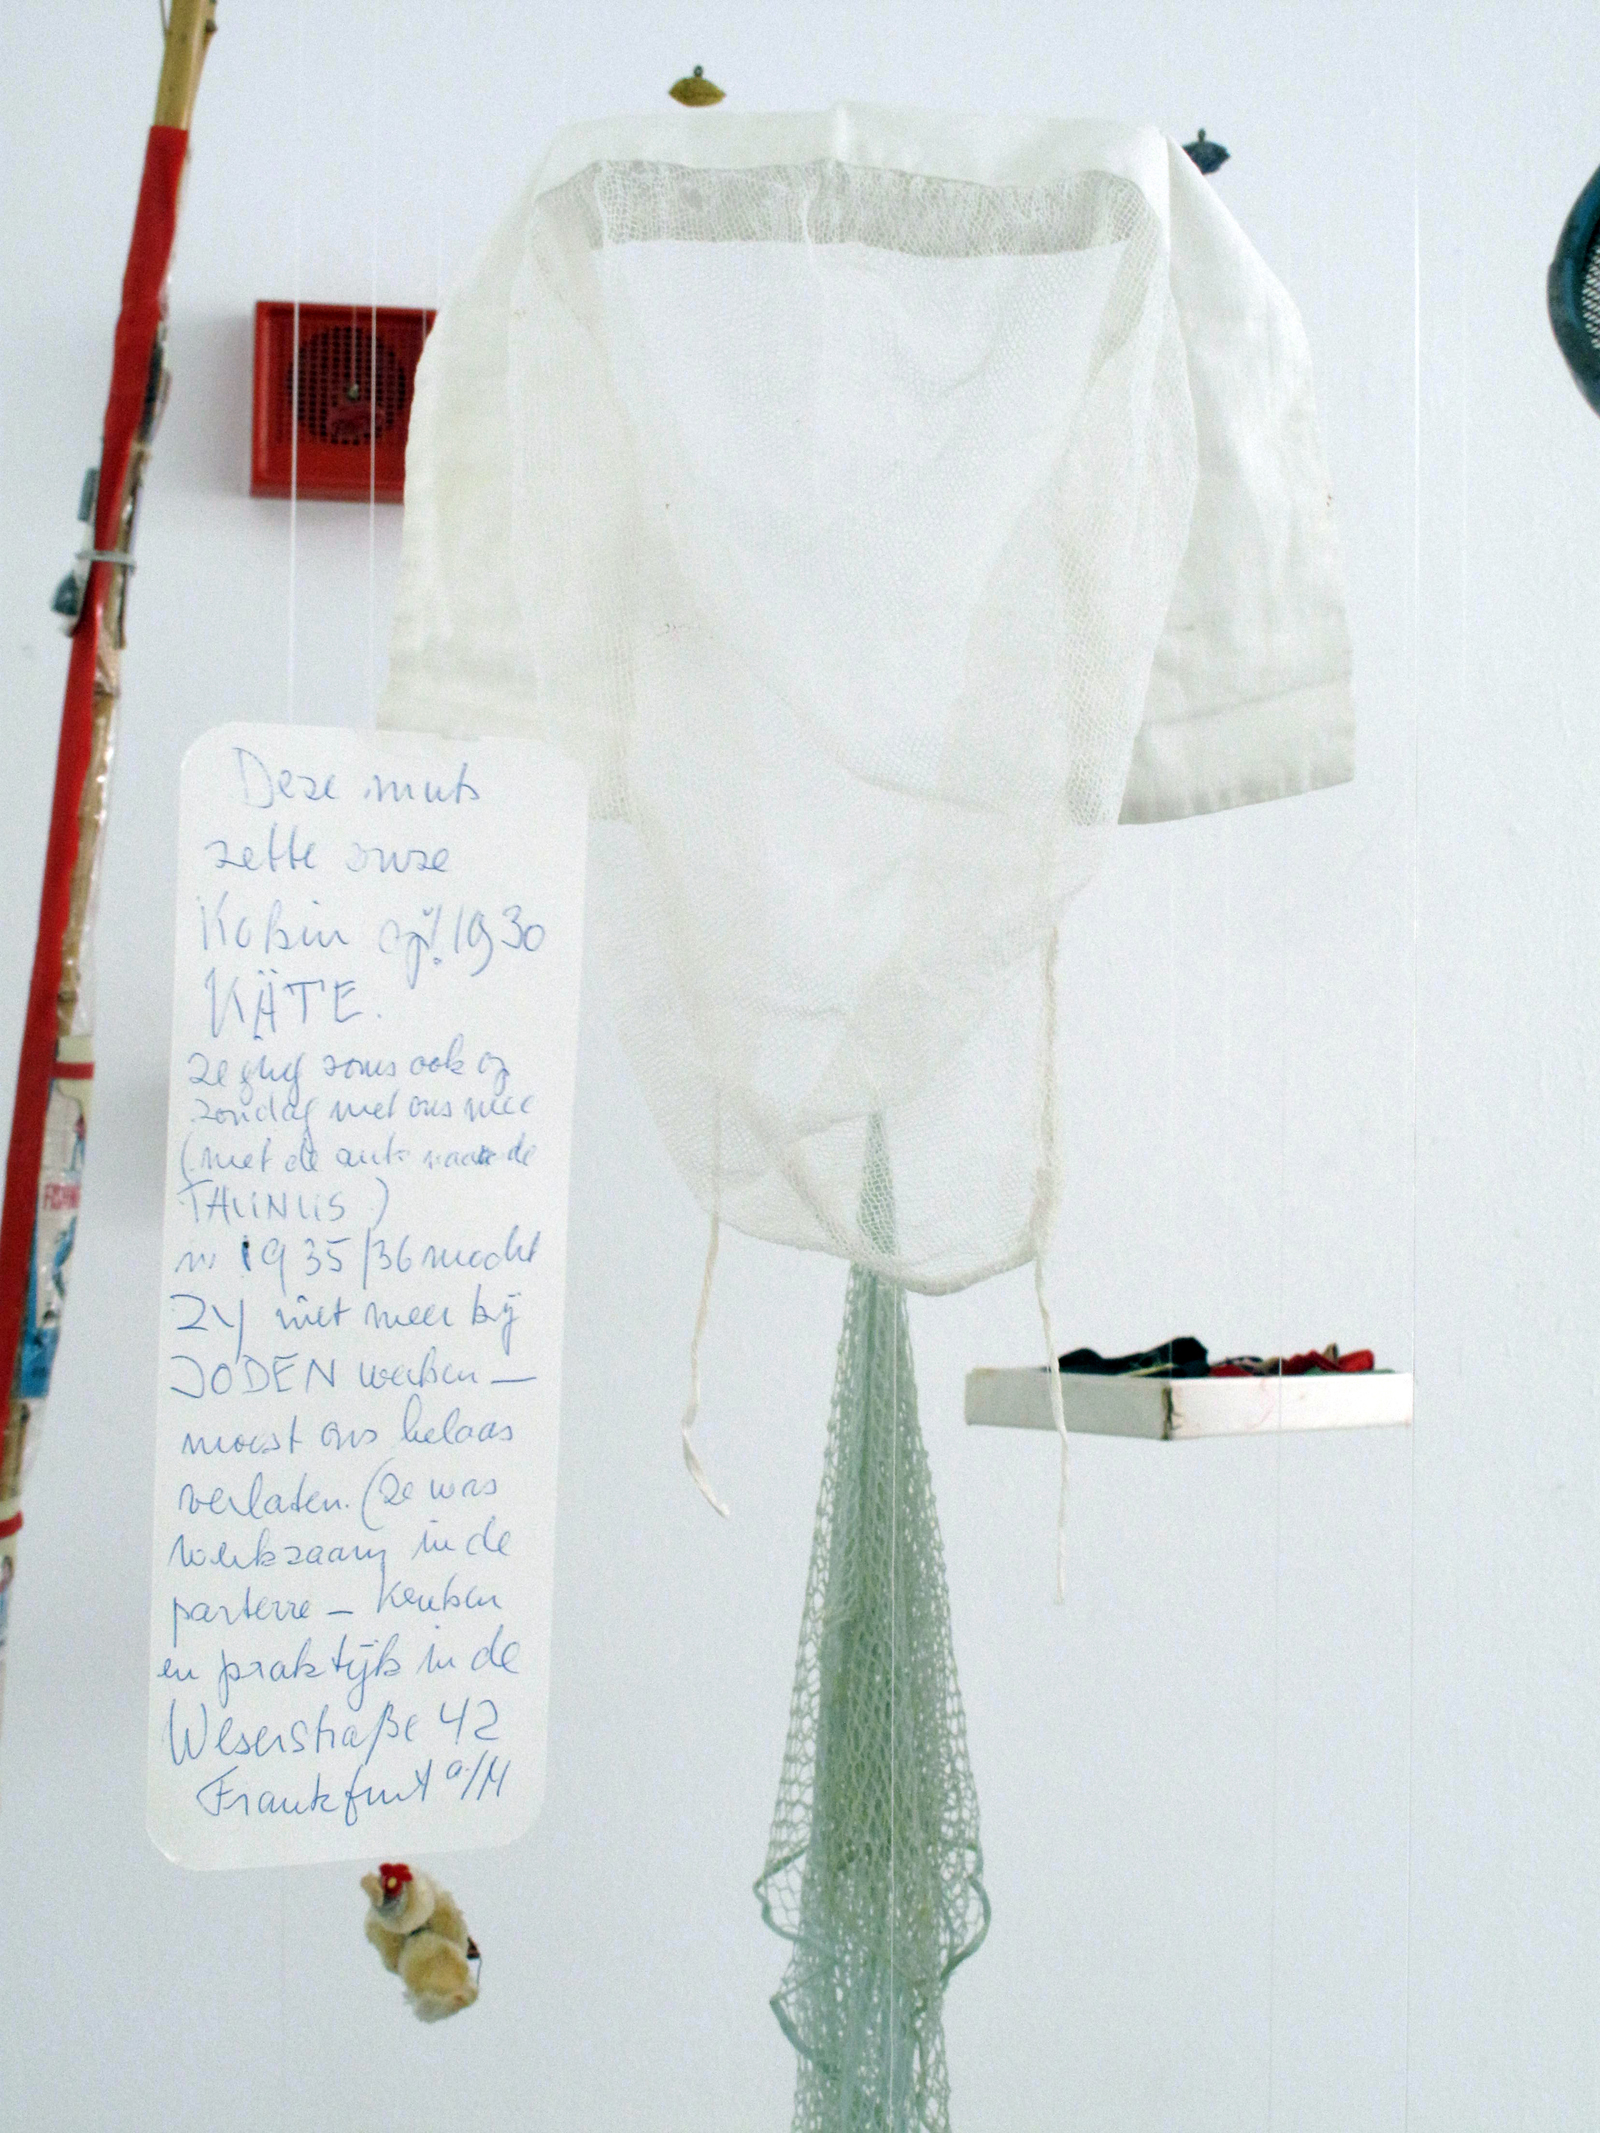 Deze muts
zette onze
Köksin op! 1930
KÄTE.
ze ging soms ook op
zondag met ons mee
(met de auto naar de
TAUNUS)
in 1935/36 mocht
ZY niet meer bij
JODEN werken —
moest ons helaas
verlaten. (ze was
werkzaam in de
parterre — keuken
en praktijk in de
Weserstraße 42
Frankfurt a/M